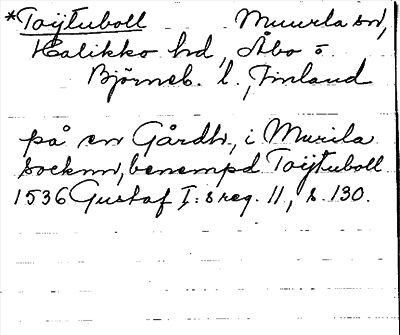 *Toijtuboll Muurla sn,
Halikko hd, Åbo o.
Björneb. l., Finland
på en Gårdh, i Murila
socknn, benempd Toijtuboll
1536 Gustaf I:s reg. 11, s. 130.